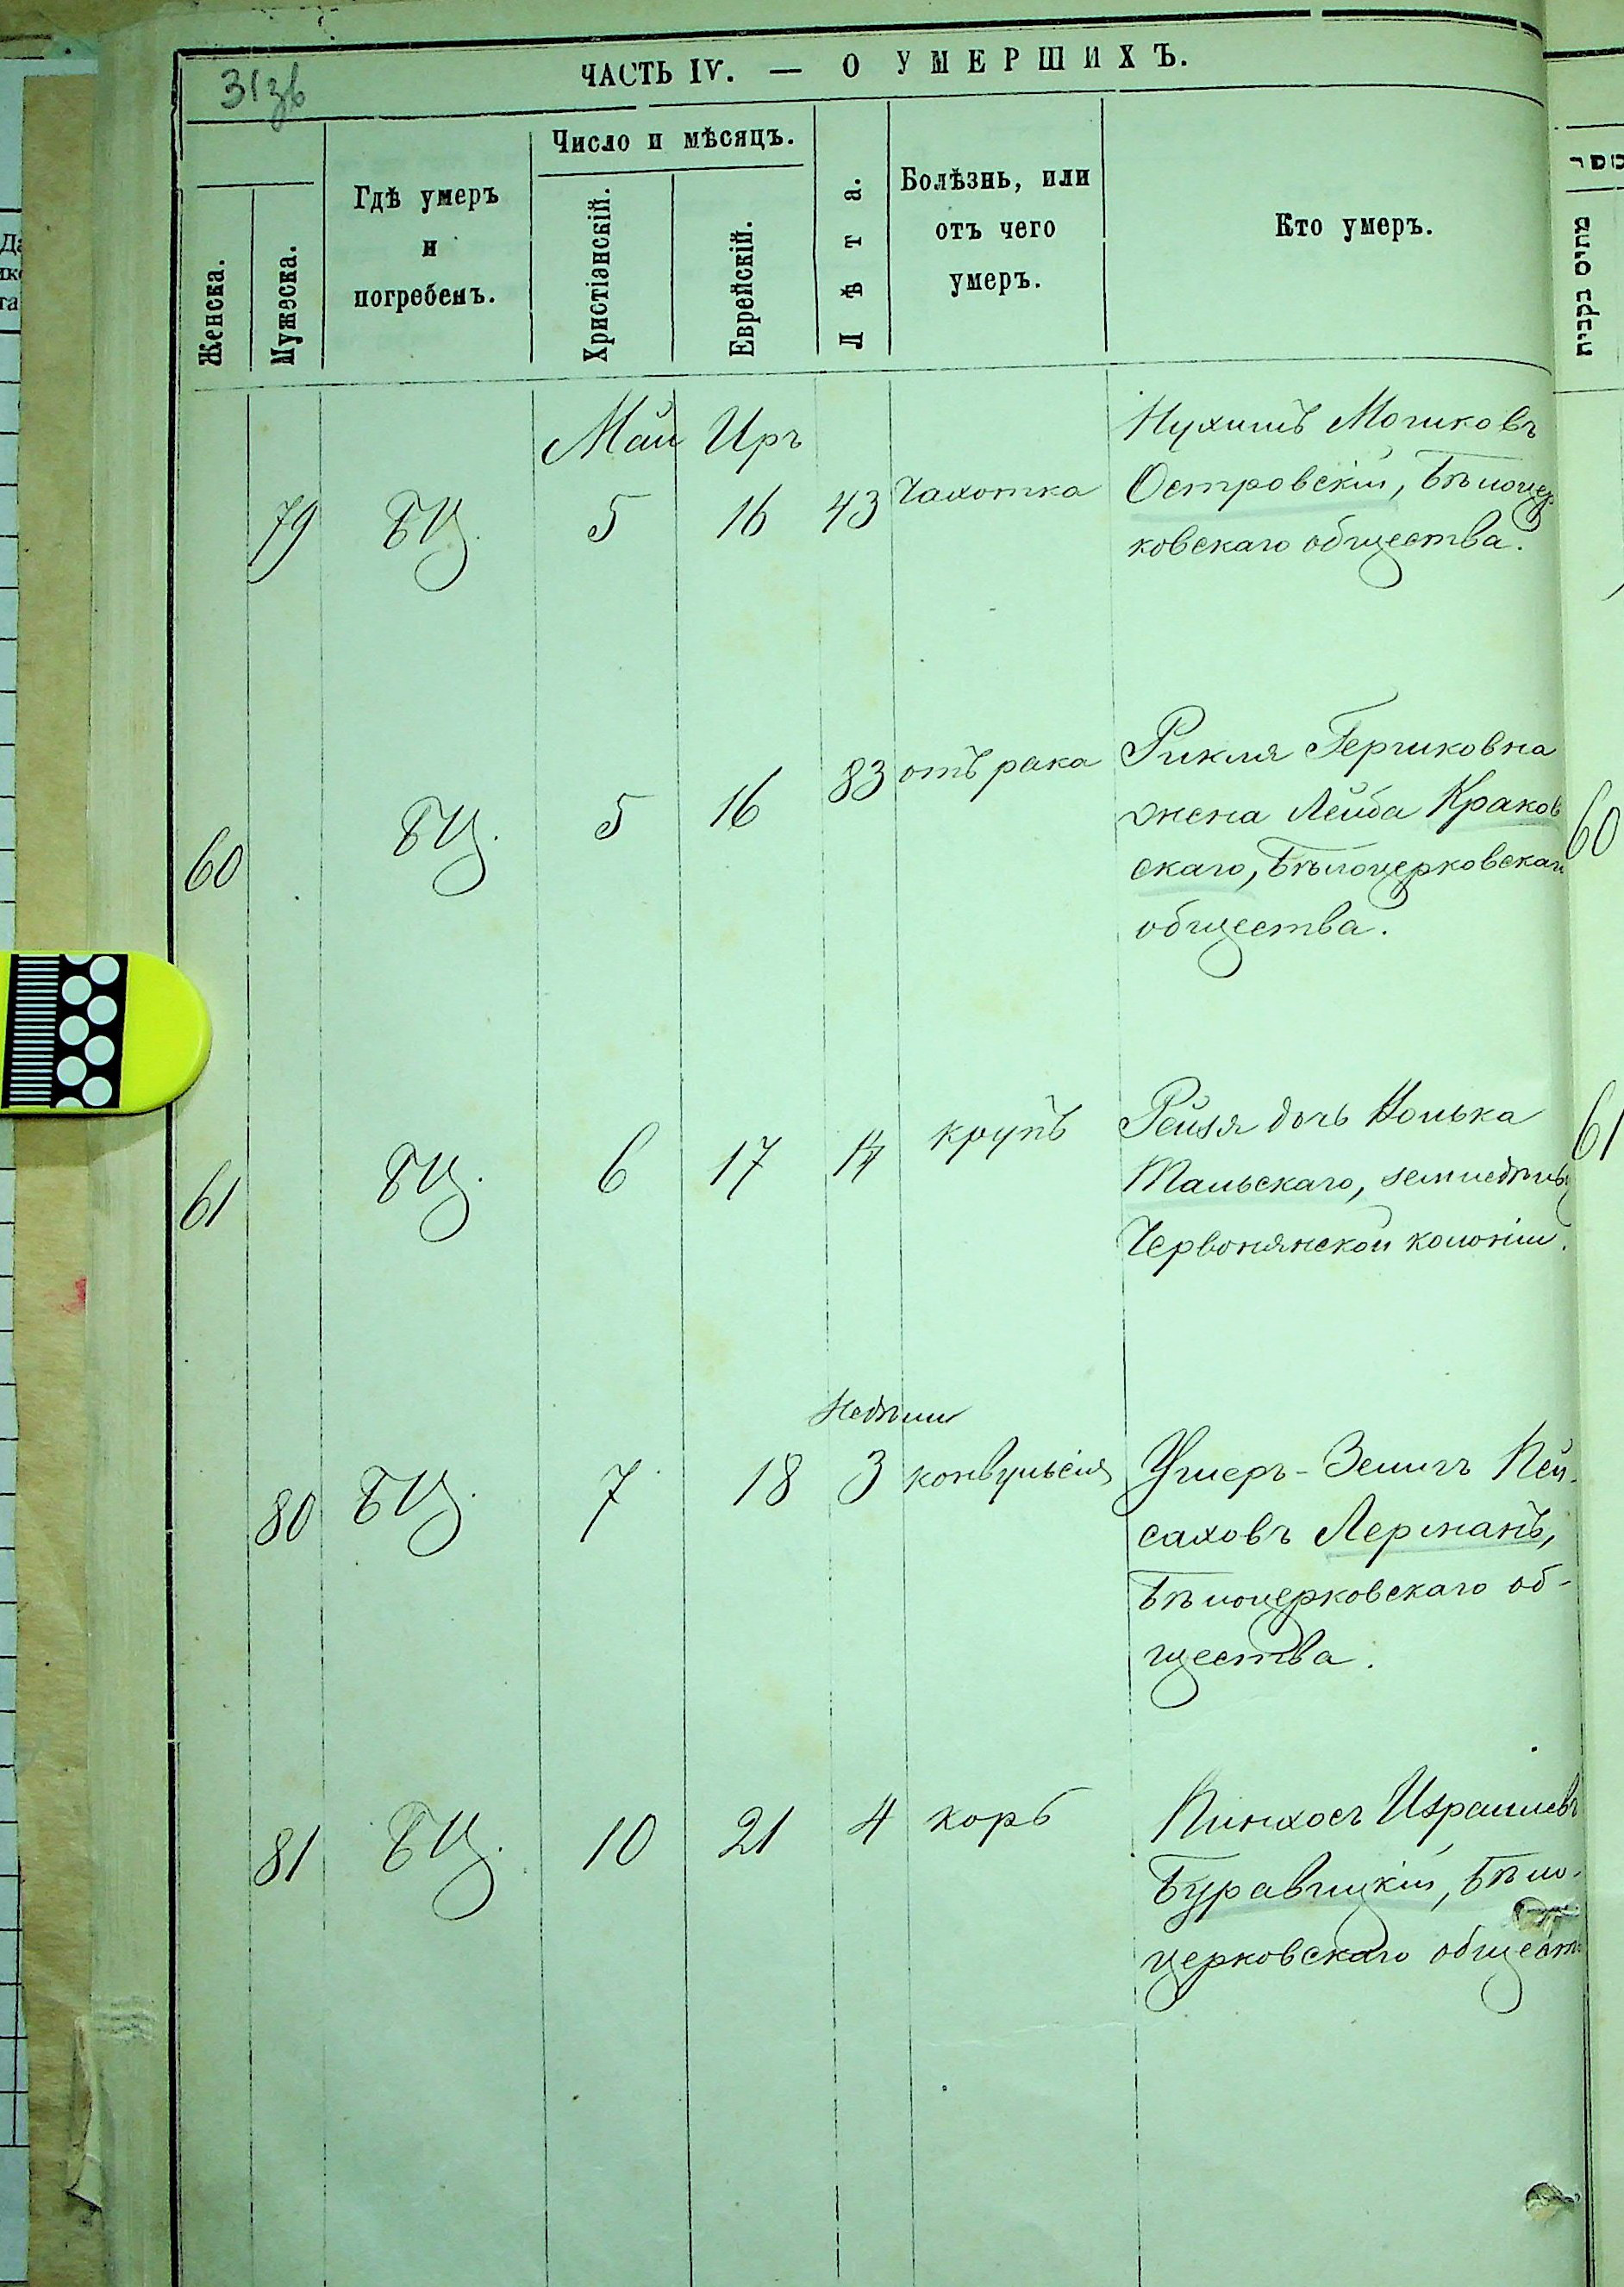 31зв
ЧАСТЬ IV. — О УМЕРШИХЪ.
Женска.
Мужеска.
Гдѣ умеръ
и
погребенъ.
Число и мѣсяцъ.
Христіанскій.
Еврейскій.
Лѣта.
Болѣзнь, или
отъ чего
умеръ.
Кто умеръ.
Май Иръ
79 БЦ. 5 16 43 Чахотка
Нухимъ Мошковъ
Островскій, Бѣлоцер
ковскаго общества.
60 БЦ. 5 16 83 отъ рака
Рикля Гершковна
жена Лейба Краков
скаго, Бѣлоцерковскаго
общества.
60
61 БЦ. 6 17 14 крупъ
Рейзя дочь
Тальскаго, земледѣльц
Червонянской колоніи.
61
Недѣли
80 БЦ. 7 18 3 конвульсія
Ушеръ-Зелигъ Пей-
саховъ Лерманъ,
Бѣлоцерковскаго об-
щества.
81 БЦ. 10 21 4 корь
Пинхосъ Израилевъ
Буравицкій, Бѣло-
церковскаго общест